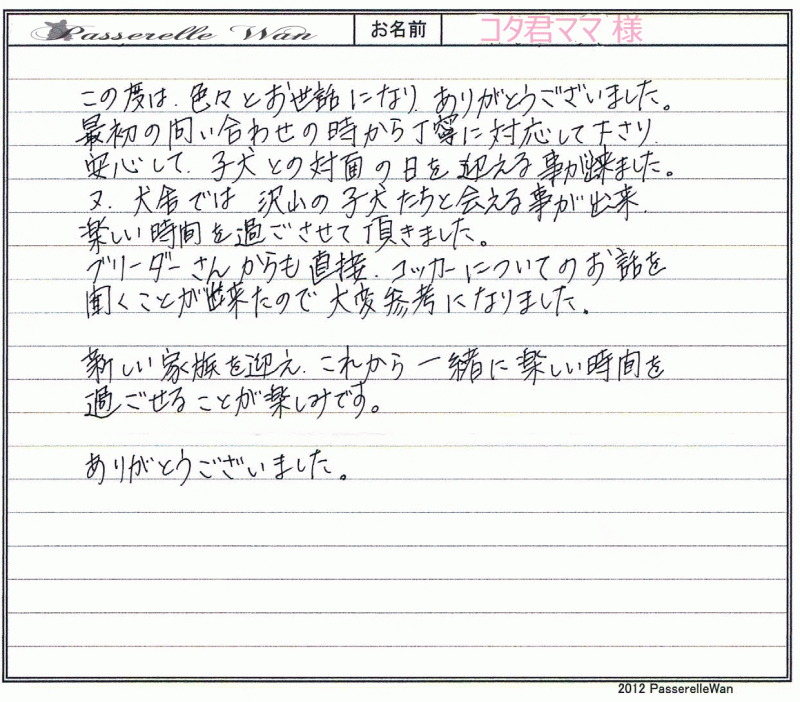 Passerelle Wan お名前 コタ君ママ 様
この度は、色々とお世話になり、ありがとうございました。
最初の問い合わせの時から丁寧に対応して下さり、
安心して、子犬との対面の日を迎える事が出来ました。
又、犬舎では 沢山の子犬たちと会える事が出来、
楽しい時間を過ごさせて頂きました。
ブリーダーさんからも直接、コッカーについてのお話を
聞くことが出来たので大変参考になりました。
新しい家族を迎え、これから一緒に楽しい時間を
過ごせることが楽しみです。
ありがとうございました。
2012 PasserelleWan